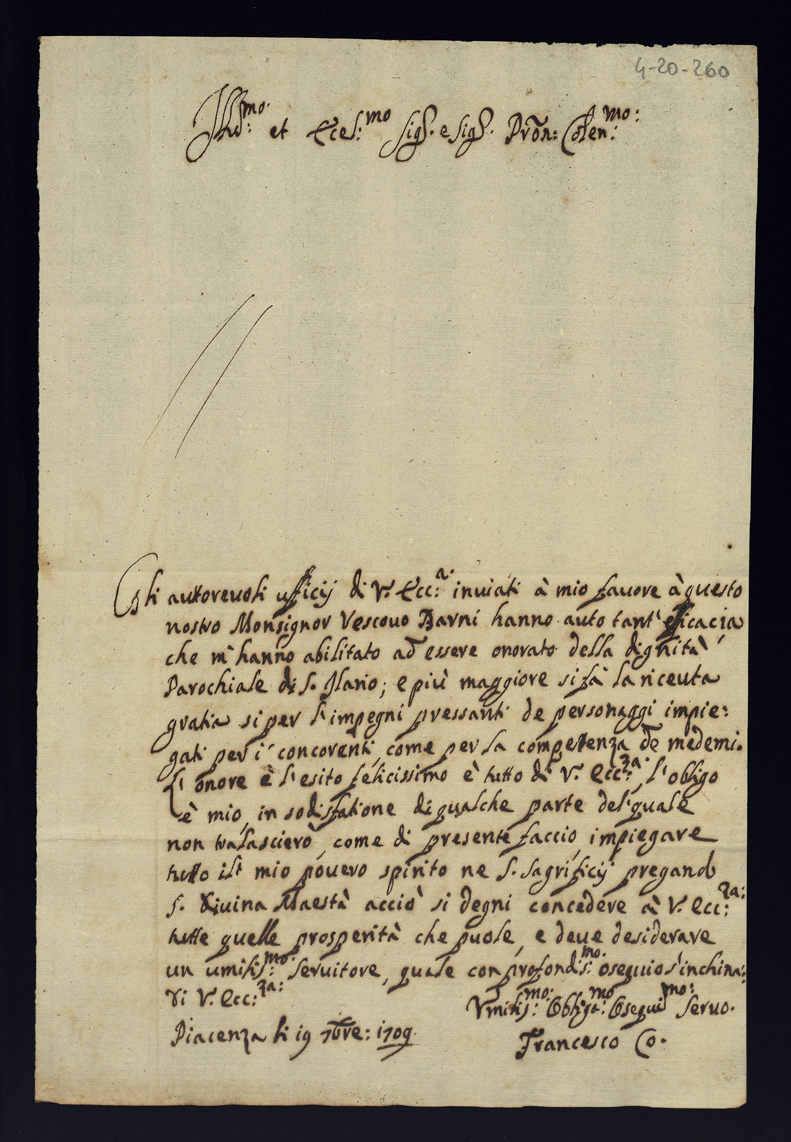 4-20-260
Ill.mo et Ecces.mo Sig.r e Sig.r Pron: Colen.mo:
Gli autorevoli ufficij di V. Ecc.a inviati à mio favore à questo
nostro Monsignor Vescovo Barni hanno auto tant' efficacia
che m' hanno abilitato ad essere onorato della dignità
Parochiale di S. Ilario; e più maggiore si fà la riceuta
gratia si per l' impegni pressanti de personaggi impie:
gati per i' concorenti, come per la competenza de medemi.
L' onore è l' esito felicissimo è tutto di V. Ecc.za: l' obligo
è mio, in sodisfatione di qualche parte del quale
non tralascierò, come di presente faccio, impiegare
tutto il mio povero spirito ne S. Sagrificij pregand
S. Divina Maestà acciò si degni concedere à V. Ecc:za:
tutte quelle prosperità che puole, e deve desiderare
un umilis:mo: servitore, quale con profondis:mo: osequio s' inchina:
Di V. Ecc:za:
Umilis:mo: Obligt:mo Osequi:mo: Servo.
Piacenza li 19 7bre: 1709.
Francesco Co.